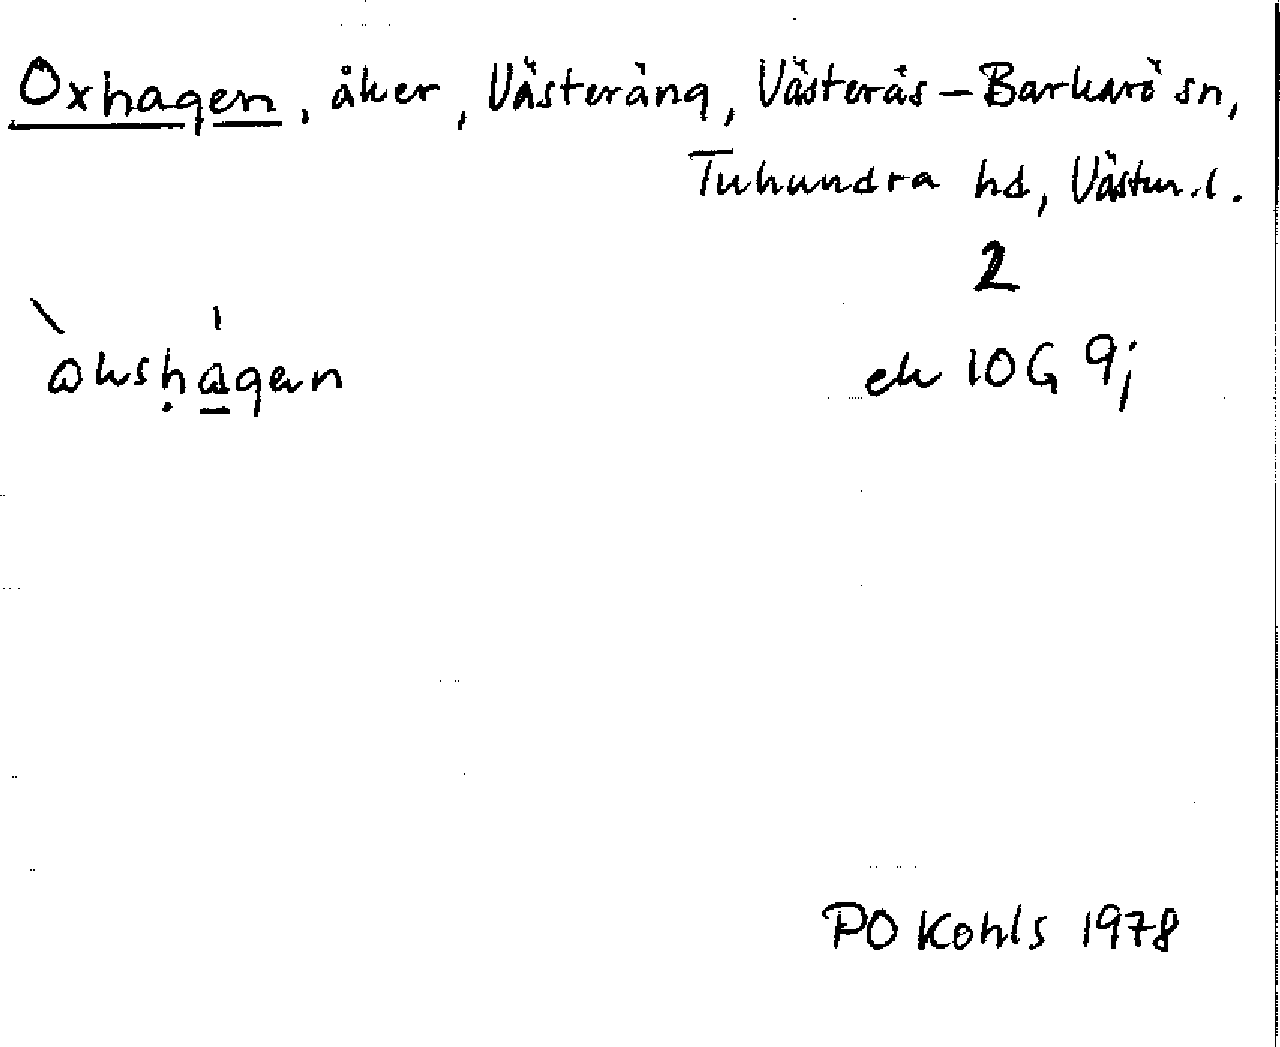 Oxhagen, åker, Västeräng, Västerås-Barkarö sn,
Tuhundra hd, Västm.l.
2
òkshágen
ek 10G 9j
PO Kohls 1978